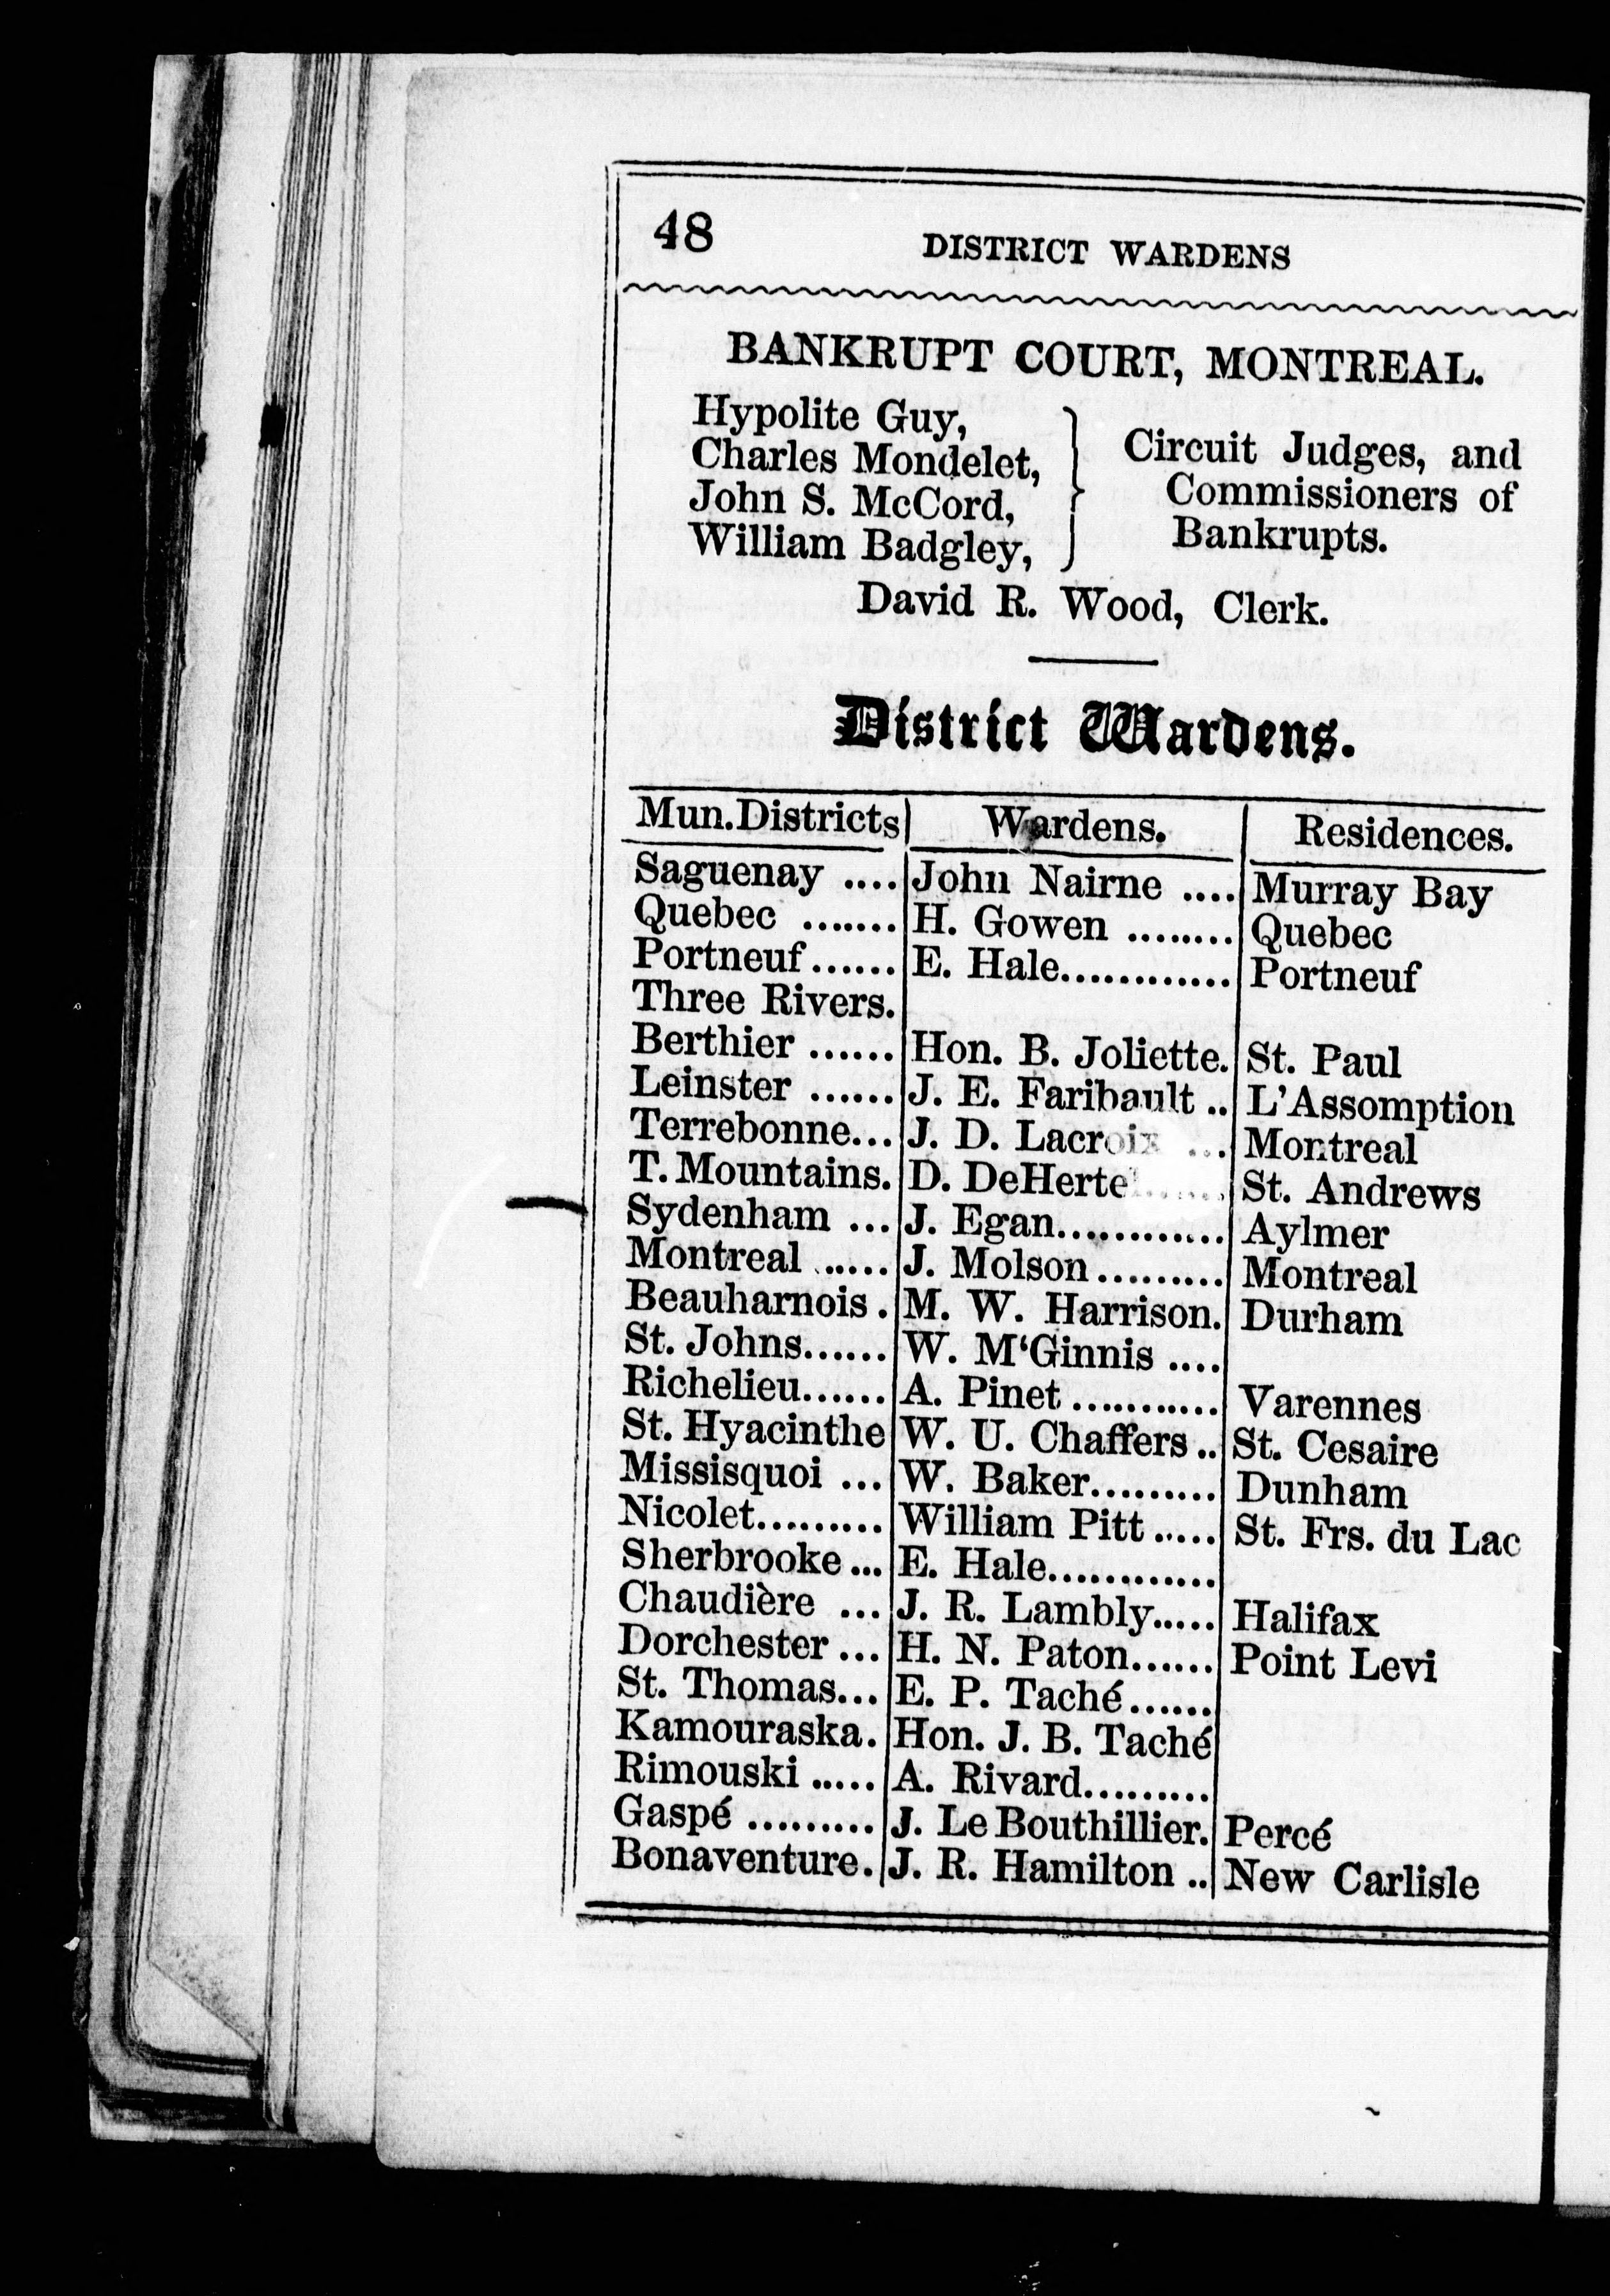 48 DISTRICT WARDENS
BANKRUPT COURT, MONTREAL.
Hypolite Guy,
Charles Mondelet,
John S. McCord,
William Badgley,
Circuit Judges, and
Commissioners of
Bankrupts.
David R. Wood, Clerk.
District Wardens.
Mun. Districts Wardens. Residences.
Saguenay .... John Nairne .... Murray Bay
Quebec ....... H. Gowen ........ Quebec
Portneuf ...... E. Hale............ Portneuf
Three Rivers.
Berthier ...... Hon. B. Joliette. St. Paul
Leinster ...... J. E. Faribault .. L'Assomption
Terrebonne... J. D. Lacroix ... Montreal
T. Mountains. D. DeHertel...... St. Andrews
Sydenham ... J. Egan............ Aylmer
Montreal ...... J. Molson ......... Montreal
Beauharnois . M. W. Harrison. Durham
St. Johns...... W. M‘Ginnis ....
Richelieu...... A. Pinet ........... Varennes
St. Hyacinthe W. U. Chaffers .. St. Cesaire
Missisquoi ... W. Baker......... Dunham
Nicolet......... William Pitt ..... St. Frs. du Lac
Sherbrooke ... E. Hale............
Chaudière ... J. R. Lambly..... Halifax
Dorchester ... H. N. Paton...... Point Levi
St. Thomas... E. P. Taché......
Kamouraska. Hon. J. B. Taché
Rimouski ..... A. Rivard.........
Gaspé ......... J. Le Bouthillier. Percé
Bonaventure. J. R. Hamilton .. New Carlisle